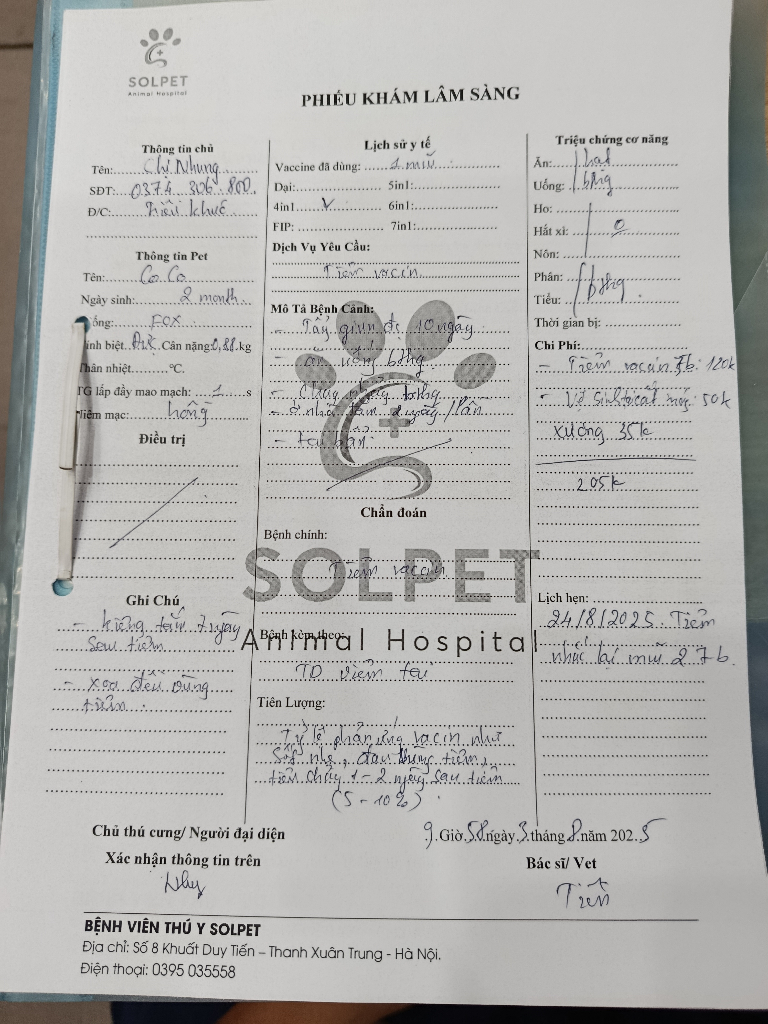 SOLPET
Animal Hospital
PHIẾU KHÁM LÂM SÀNG
Thông tin chủ
Tên: Chị Nhung
SĐT: 0374 306 800
Đ/C: Triều khúc
Thông tin Pet
Tên: Co Co
Ngày sinh: 2 month
ống: FOX
ính biệt. Đực Cân nặng: 0,88.kg
Thân nhiệt.............°C.
TG lấp đầy mao mạch: 1 s
Niêm mạc: hồng
Điều trị
Ghi Chú
- kiêng tắm 7 ngày
sau tiêm
- xoa đều vùng
tiêm.
Lịch sử y tế
Vaccine đã dùng: 1 mũi
Dại: 5in1:
4in1 V 6in1:
FIP: 7in1:
Dịch Vụ Yêu Cầu:
Tiêm vacin
Mô Tả Bệnh Cảnh:
- Tẩy giun đc 10 ngày
- ăn uống bthg
- ở nhà tắm 2 ngày/lần
- tai bẩn
Chẩn đoán
Bệnh chính:
Tiêm vaccin
SOLPET
Animal Hospital
Bệnh kèm theo:
TD viêm tai
Tiên Lượng:
Tỷ lệ phản ứng vacin như
sốt nhẹ, đau vùng tiêm,
tiêu chảy 1-2 ngày sau tiêm
(5-10%).
Triệu chứng cơ năng
Ăn: hạt
Uống: bthg
Ho:
Hắt xì: 0
Nôn:
Phân: bthg
Tiểu:
Thời gian bị:
Chi Phí:
- Tiêm vacin 5b: 120k
- Vệ sinh, cắt móng: 50k
xương 35k
205k
Lịch hẹn:
24/8/2025 Tiêm
nhắc lại mũi 2 7b.
Chủ thú cưng/ Người đại diện
Xác nhận thông tin trên
9.Giờ.58.ngày.3.tháng.8.năm 2025
Bác sĩ/ Vet
Tiến
BỆNH VIỆN THÚ Y SOLPET
Địa chỉ: Số 8 Khuất Duy Tiến – Thanh Xuân Trung - Hà Nội.
Điện thoại: 0395 035558